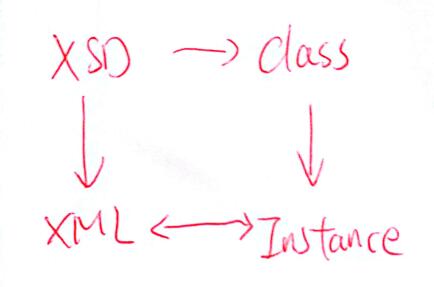 XSD → class
XML ↔ Instance